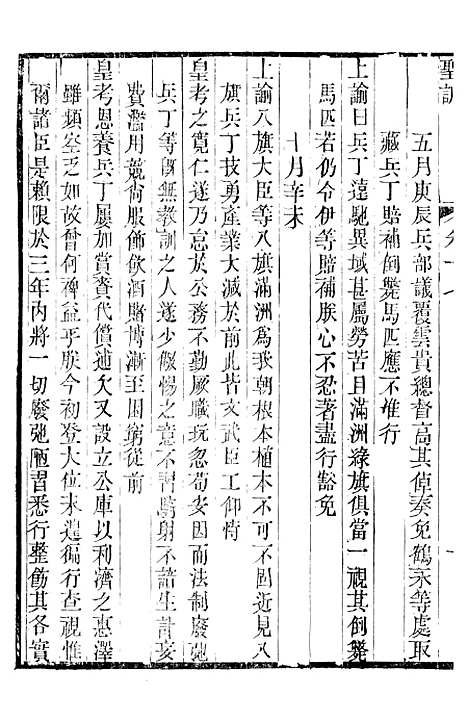 聖訓
五月庚辰兵部議覆雲貴總督高其倬奏免鶴永等處取
藏兵丁賠補倒斃馬匹應不准行
上諭曰兵丁遠馳異域甚屬勞苦且滿洲綠旗俱當一視其倒斃
馬匹若仍令伊等賠補朕心不忍著盡行豁免
十月辛未
上諭八旗大臣等八旗滿洲為我朝根本植本不固近見八
旗兵丁技勇產業大減於前此皆文武臣工仰恃
皇考之寬仁遂乃怠於公務不勤厥職玩忽苟安因而法制廢弛
兵丁等既無教訓之人遂少儆惕之意不習騎射不諳生計妄
費濫用競尚服飾飲酒賭博漸至困窮從前
皇考恩養兵丁屢加賞賚代償逋欠又設立公庫以利濟之惠澤
雖頻窒乏如故曾何裨益乎朕今初登大位未遑徧行查視惟
爾諸臣是賴限於三年內將一切廢弛陋習悉行整飭其各實